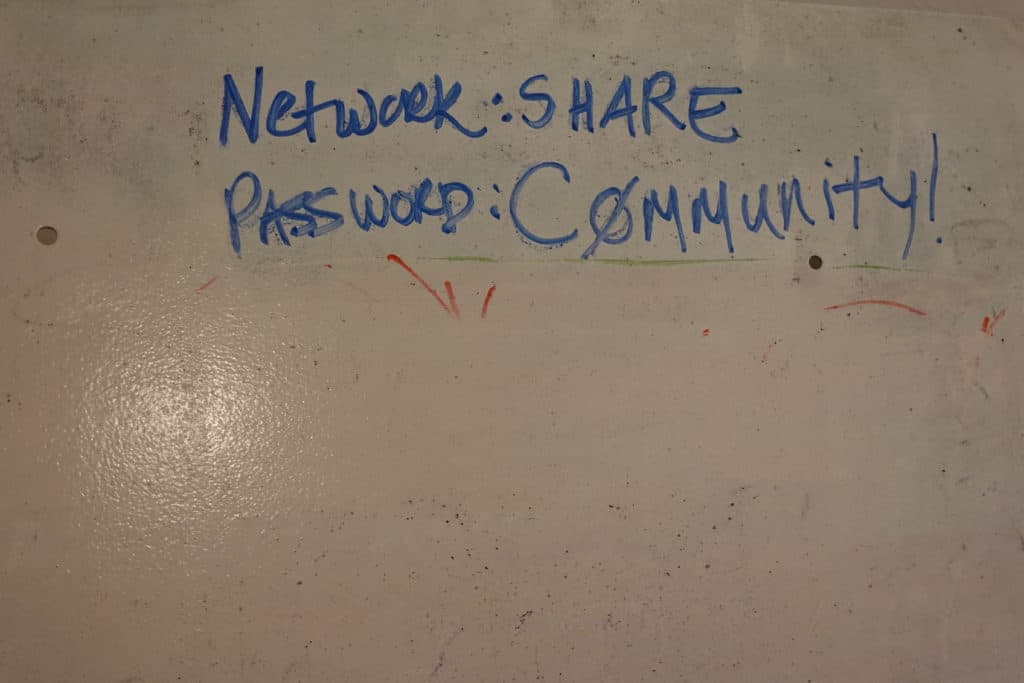 Network: SHARE
PASSWORD: C0mmunity!